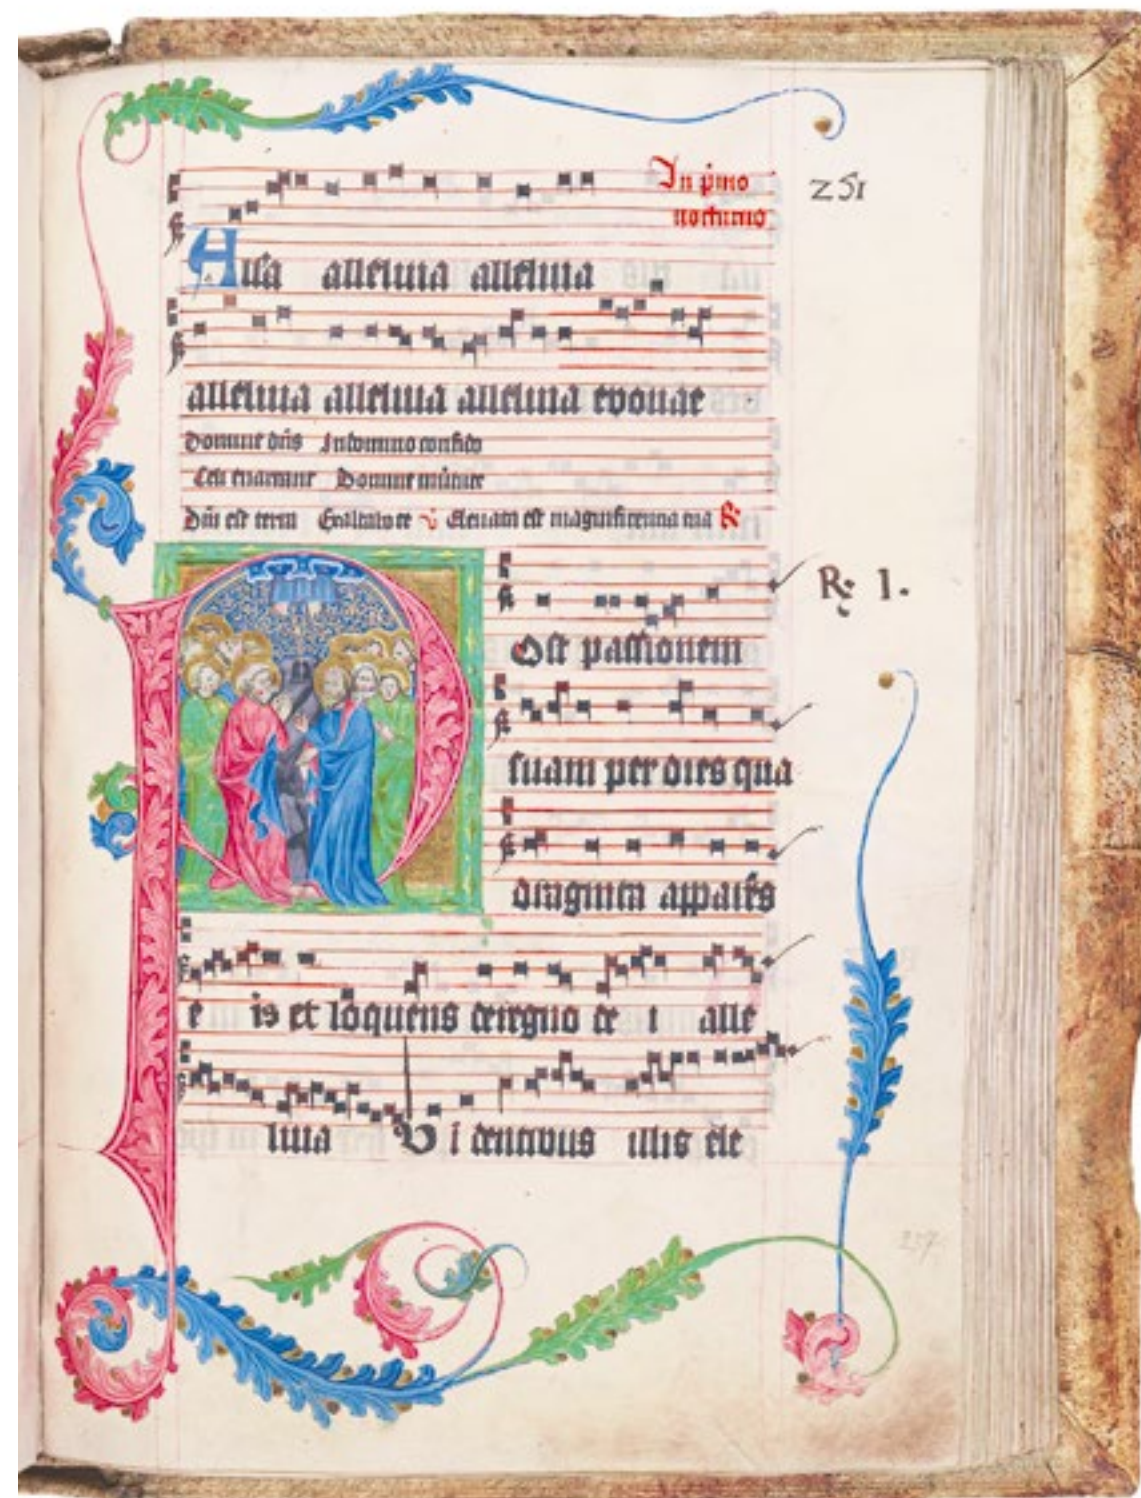 In p̄mo
nocturno
251
Alla alleluia alleluia
alleluia alleluia alleluia evouae
Domine dn̄s In domino confido
Celi enarrant Domine in
Dn̄i est terra Exaltabo te ℣ Elevata est magnificentia tua ℟
R: 1.
Post passionem
suam per dies qua
draginta apparēs
e is et loquens de regno de i alle
luia Vi dentibus illis ele
257